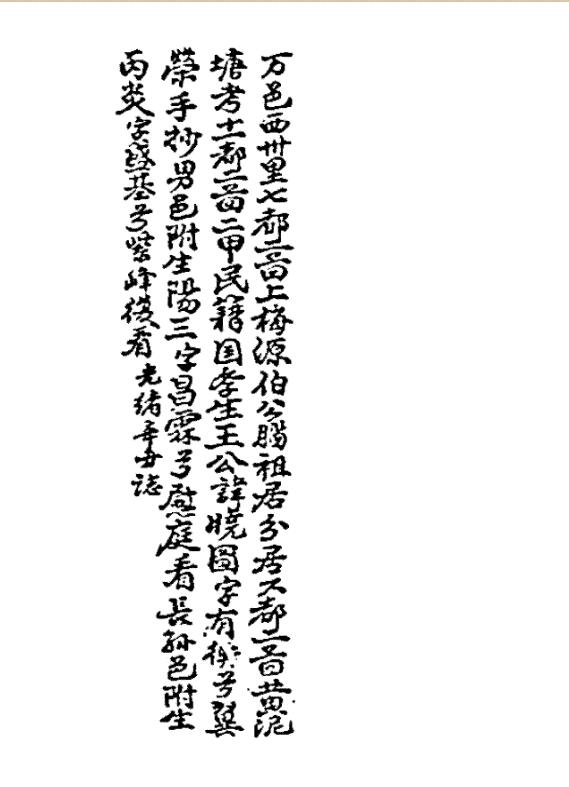 万邑西卅里七都一啚上梅源伯公腦祖居分居六都一啚黄泥
塘考十一都一啚二甲民籍国学生王公諱曉圖字有能号巽
榮手抄男邑附生陽三字昌霖号慰庭看長孙邑附生
丙炎字盛基号紫峰後看光绪辛丑誌